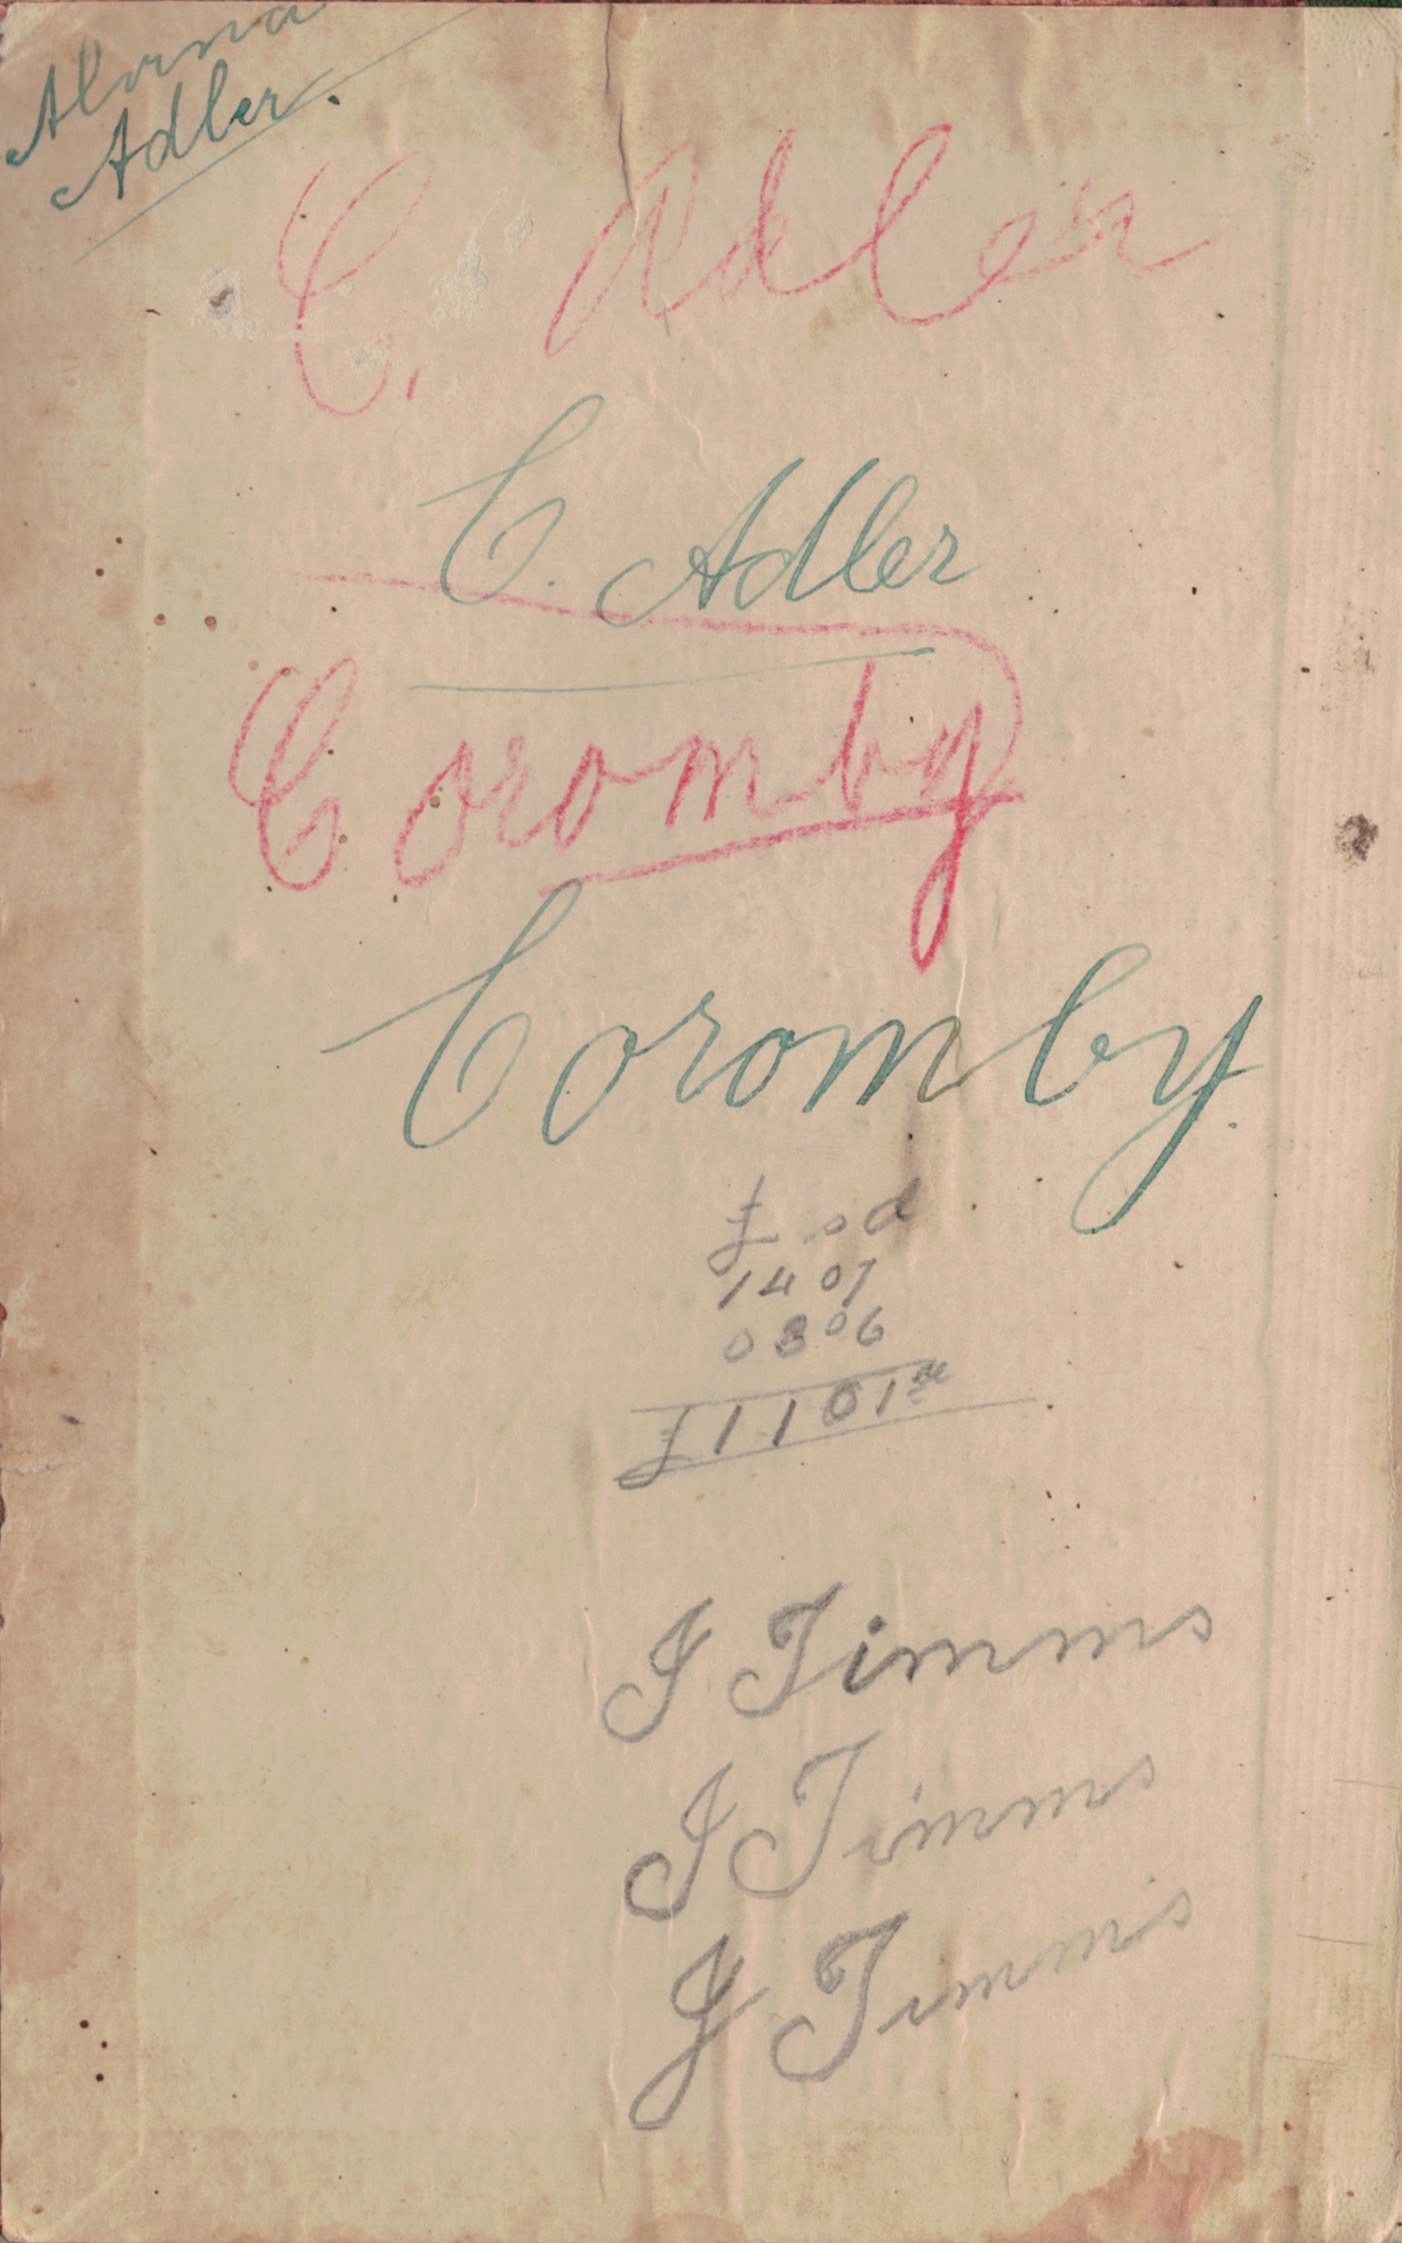 Alorna
Adler.
C. Adler
C. Adler
Coromby
Coromby.
£ s d
14 07
03 06
£1 1 01
I Timms
I Timms
J Timms